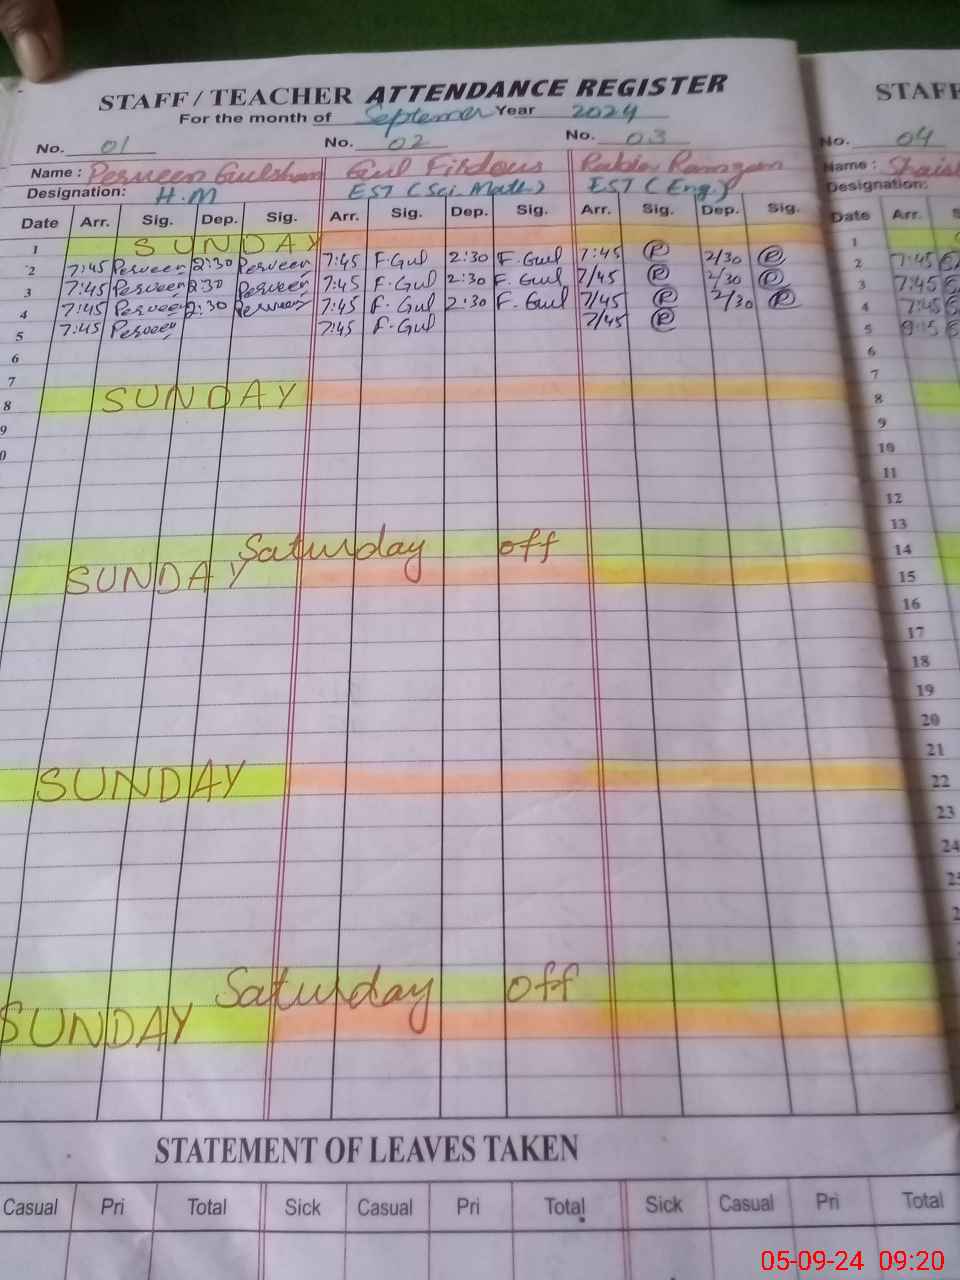 STAFF / TEACHER ATTENDANCE REGISTER
For the month of Septemer Year 2024
No. 01 No. 02 No. 03
Name : Perveen Gulshan Gul Firdous Rabia Ramzan
Designation: H.M EST (Sci. Math) EST (Eng.)
Date Arr. Sig. Dep. Sig. Arr. Sig. Dep. Sig. Arr. Sig. Dep. Sig.
1 SUNDAY
2 7:45 Perveen 2:30 Perveen 7:45 F.Gul 2:30 F.Gul 7:45 2/30
3 7:45 Perveen 2:30 Perveen 7:45 F.Gul 2:30 F.Gul 7/45 2/30
4 7:45 Perveen 2:30 Perveen 7:45 F.Gul 2:30 F.Gul 7/45 2/30
5 7:45 Perveen 7:45 F.Gul 7/45
6
7
8 SUNDAY
9
0
Saturday off
SUNDAY
SUNDAY
Saturday off
SUNDAY
STATEMENT OF LEAVES TAKEN
Casual Pri Total Sick Casual Pri Total Sick Casual Pri Total
STAFF
No. 04
Name : Shaist
Designation:
Date Arr. S
1
2 7:45
3 7:45
4 7:45
5 9:15
6
7
8
9
10
11
12
13
14
15
16
17
18
19
20
21
22
23
24
25
2
05-09-24 09:20